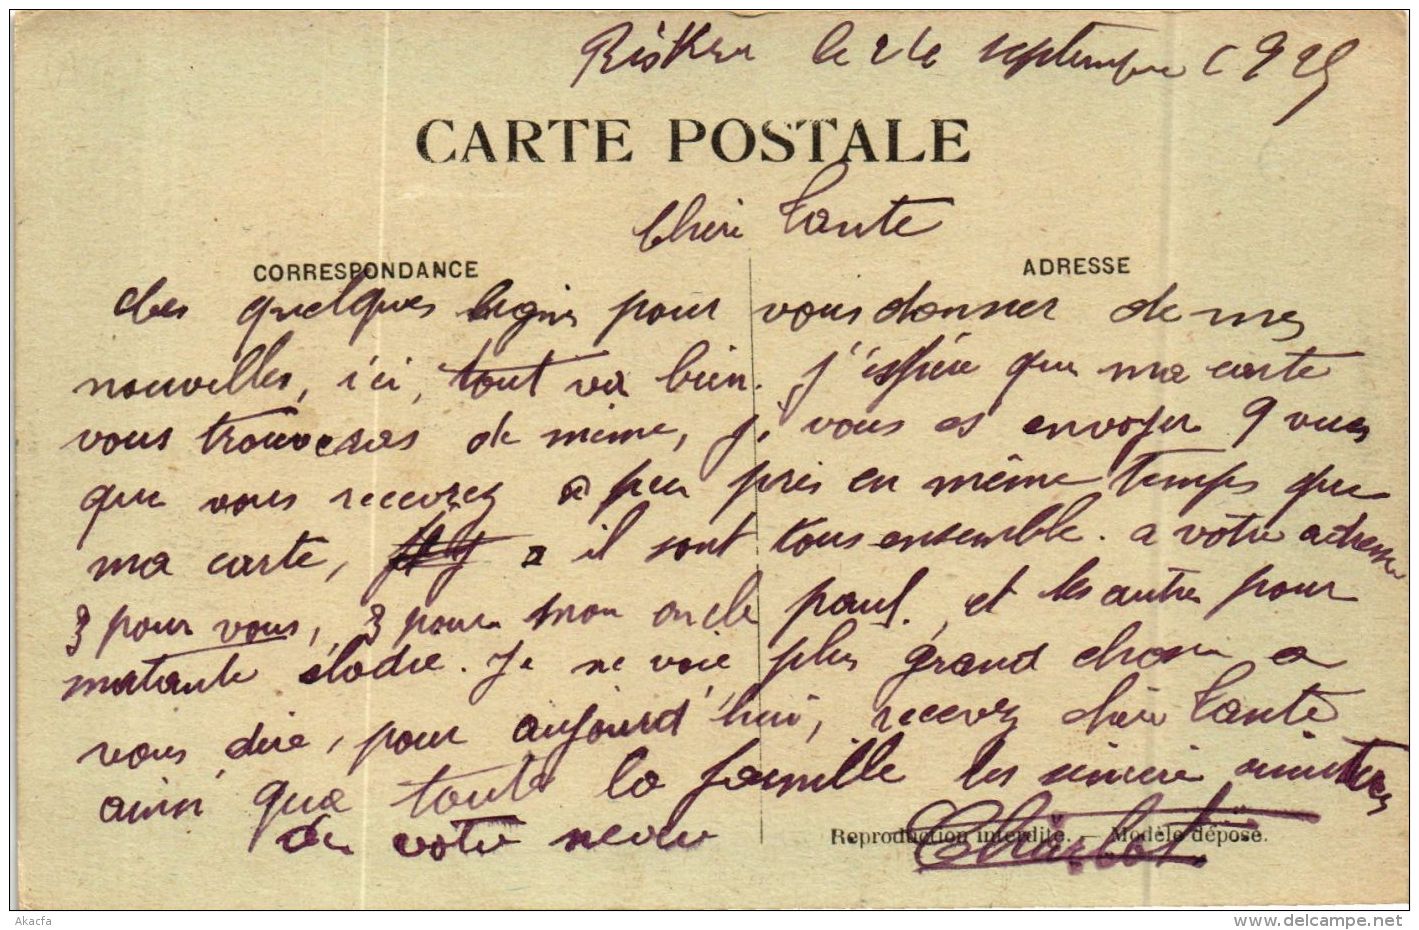 le 24 septembre 1925
CARTE POSTALE
Chère Tante
CORRESPONDANCE
ADRESSE
des quelques lignes pour vous donner de mes
nouvelles, ici, tout va bien. J'espère que ma carte
vous trouveras de même, je vous es envoyer 9 vues
que vous recevrez a peu près en même temps que
ma carte, il sont tous ensemble. a votre adresse
3 pour vous, 3 pour mon oncle paul, et les autres pour
matante élodie. Je ne voie plus grand chose a
vous dire, pour aujourd'hui, recevez chère Tante
ainsi que toute la famille les sincère amitiées
de votre neveu
Charlot
Reproduction interdite. — Modèle déposé.
Akacfa
www.delcampe.net